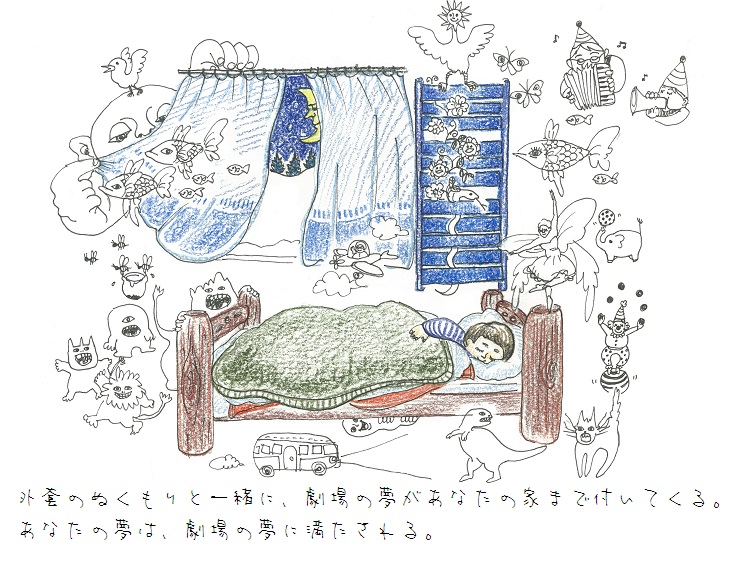 外套のぬくもりと一緒に、劇場の夢があなたの家まで付いてくる。
あなたの夢は、劇場の夢に満たされる。